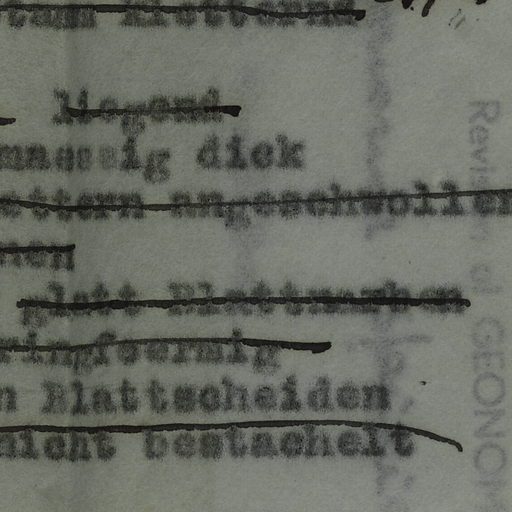 liegend
maessig dick
ettern angeschwollen
nen
glatt Blattnarben
ringfoermig
n Blattscheiden
nicht bestachelt
GEONO